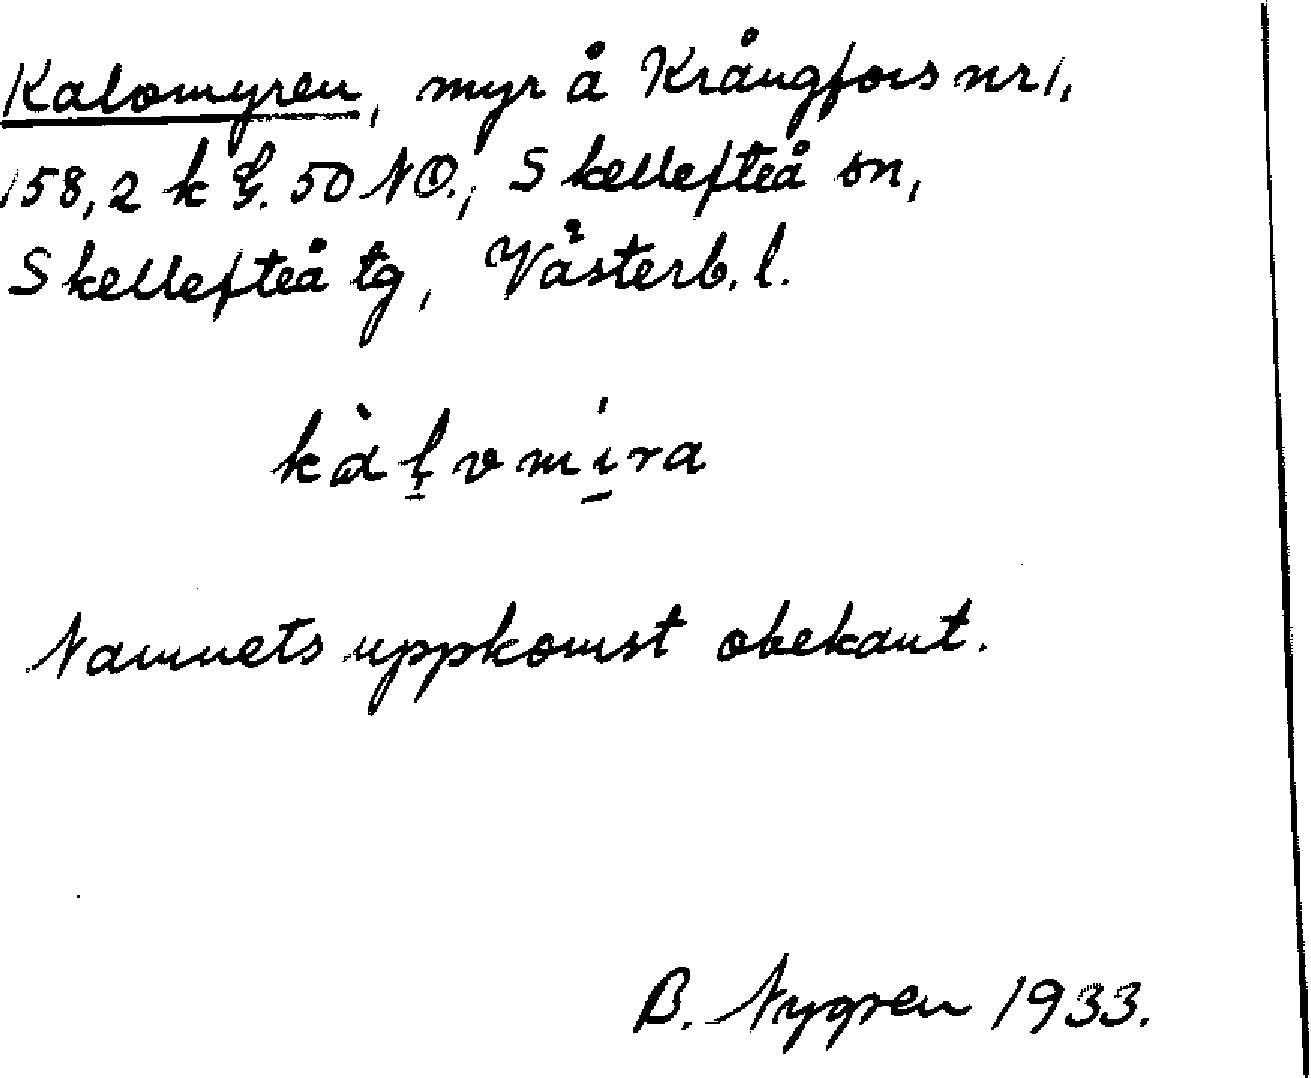 Kalomyren, myr å Krångfors nr 1,
158,2 k G. 50 NO., Skellefteå sn,
Skellefteå tg, Västerb. l.
kàḷvmi̱ra
Namnets uppkomst obekant.
B. Nygren 1933.